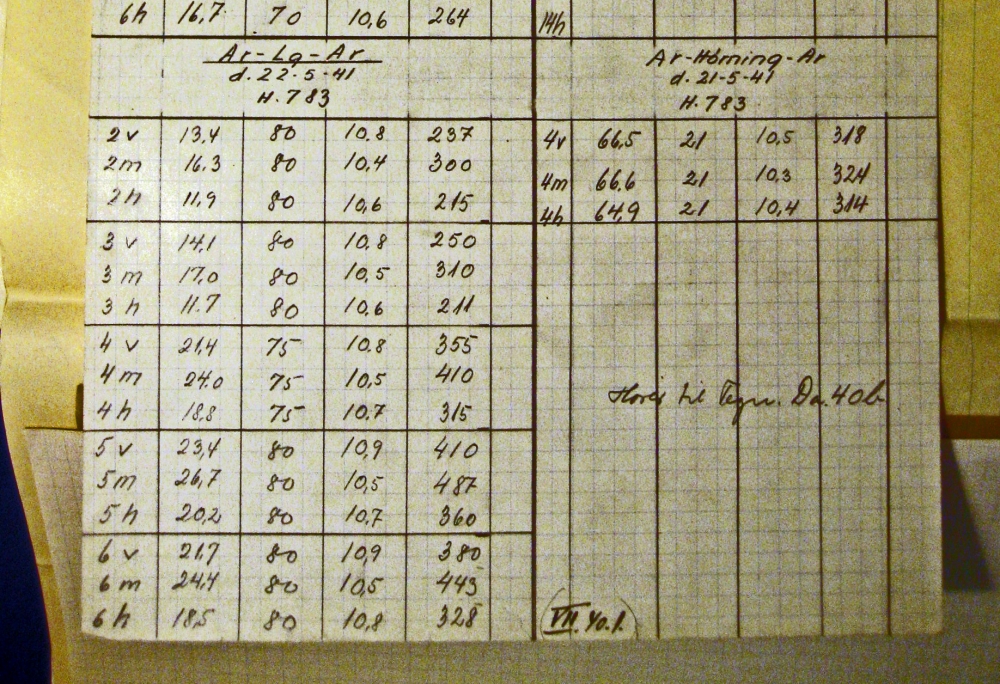 6h 16,7 70 10,6 264
Ar-Lg-Ar
d. 22-5-41
H. 783
2v 13,4 80 10,8 237
2m 16,3 80 10,4 300
2h 11,9 80 10,6 215
3v 14,1 80 10,8 250
3m 17,0 80 10,5 310
3h 11.7 80 10,6 211
4v 21,4 75 10.8 355
4m 24.0 75 10,5 410
4h 18,8 75 10,7 315
5v 23,4 80 10,9 410
5m 26,7 80 10,5 487
5h 20,2 80 10,7 360
6v 21,7 80 10,9 380
6m 24,4 80 10,5 443
6h 18,5 80 10,8 328
14h
Ar-Hörning-Ar
d. 21-5-41
H. 783
4v 66,5 21 10,5 318
4m 66,6 21 10,3 324
4h 64,9 21 10,4 314
til Tegn. Da. 40b
VII. 40.1.